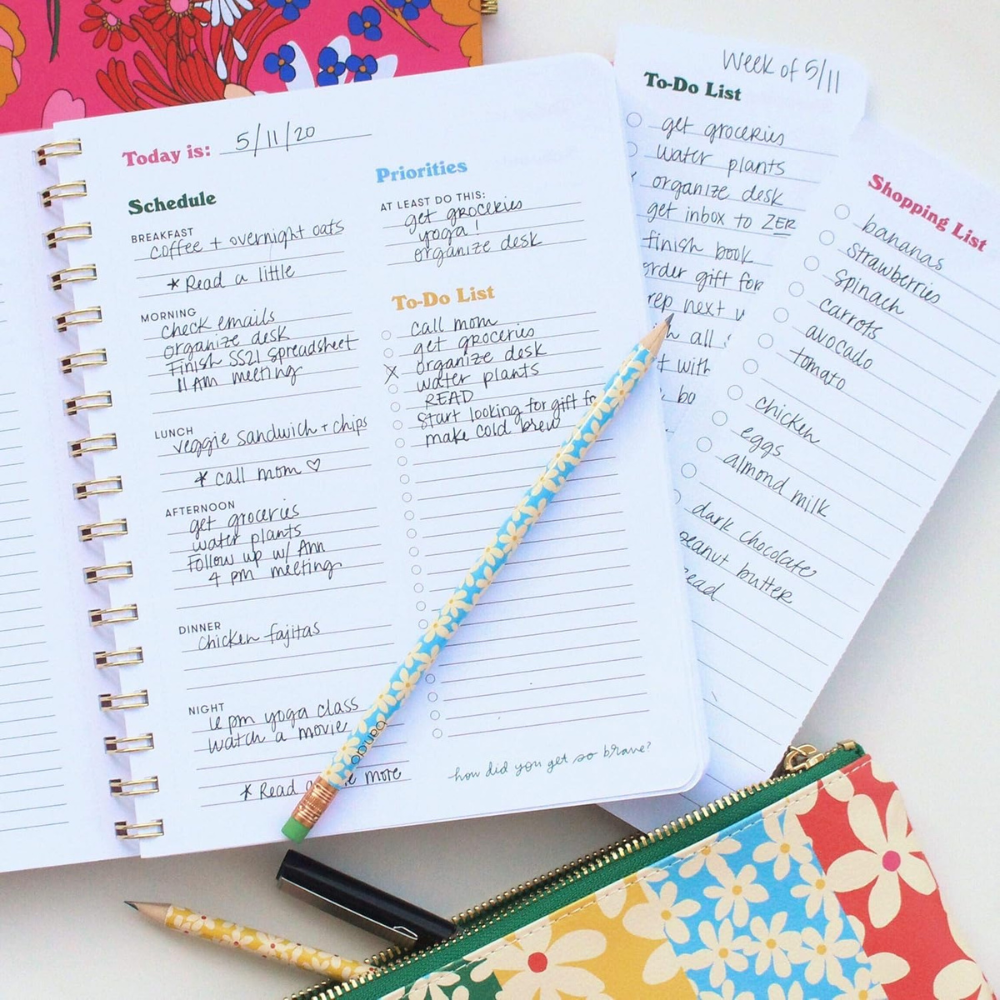 Today is: 5/11/20
Schedule
BREAKFAST
coffee + overnight oats
* Read a little
MORNING
check emails
organize desk
Finish SS21 Spreadsheet
11 AM meeting
LUNCH
veggie sandwich + chips
* call mom ♡
AFTERNOON
get groceries
water plants
Follow up w/ Ann
4 pm meeting
DINNER
chicken fajitas
NIGHT
6 pm yoga class
watch a movie
* Read more
Priorities
AT LEAST DO THIS:
get groceries
yoga!
organize desk
To-Do List
call mom
get groceries
X organize desk
water plants
READ
start looking for gift
make cold brew
how did you get so brave?
ban.do
Week of 5/11
To-Do List
get groceries
water plants
organize desk
get inbox to
finish book
order gift for
next
all
with
Shopping List
bananas
strawberries
spinach
carrots
avocado
tomato
chicken
eggs
almond milk
dark chocolate
peanut butter